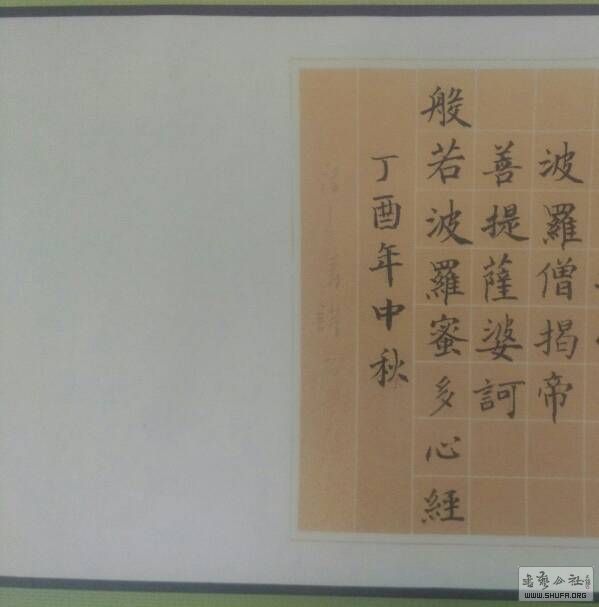 波羅僧揭帝
善提薩婆訶
般若波羅蜜多心經
丁酉年中秋
WWW.SHUFA.ORG